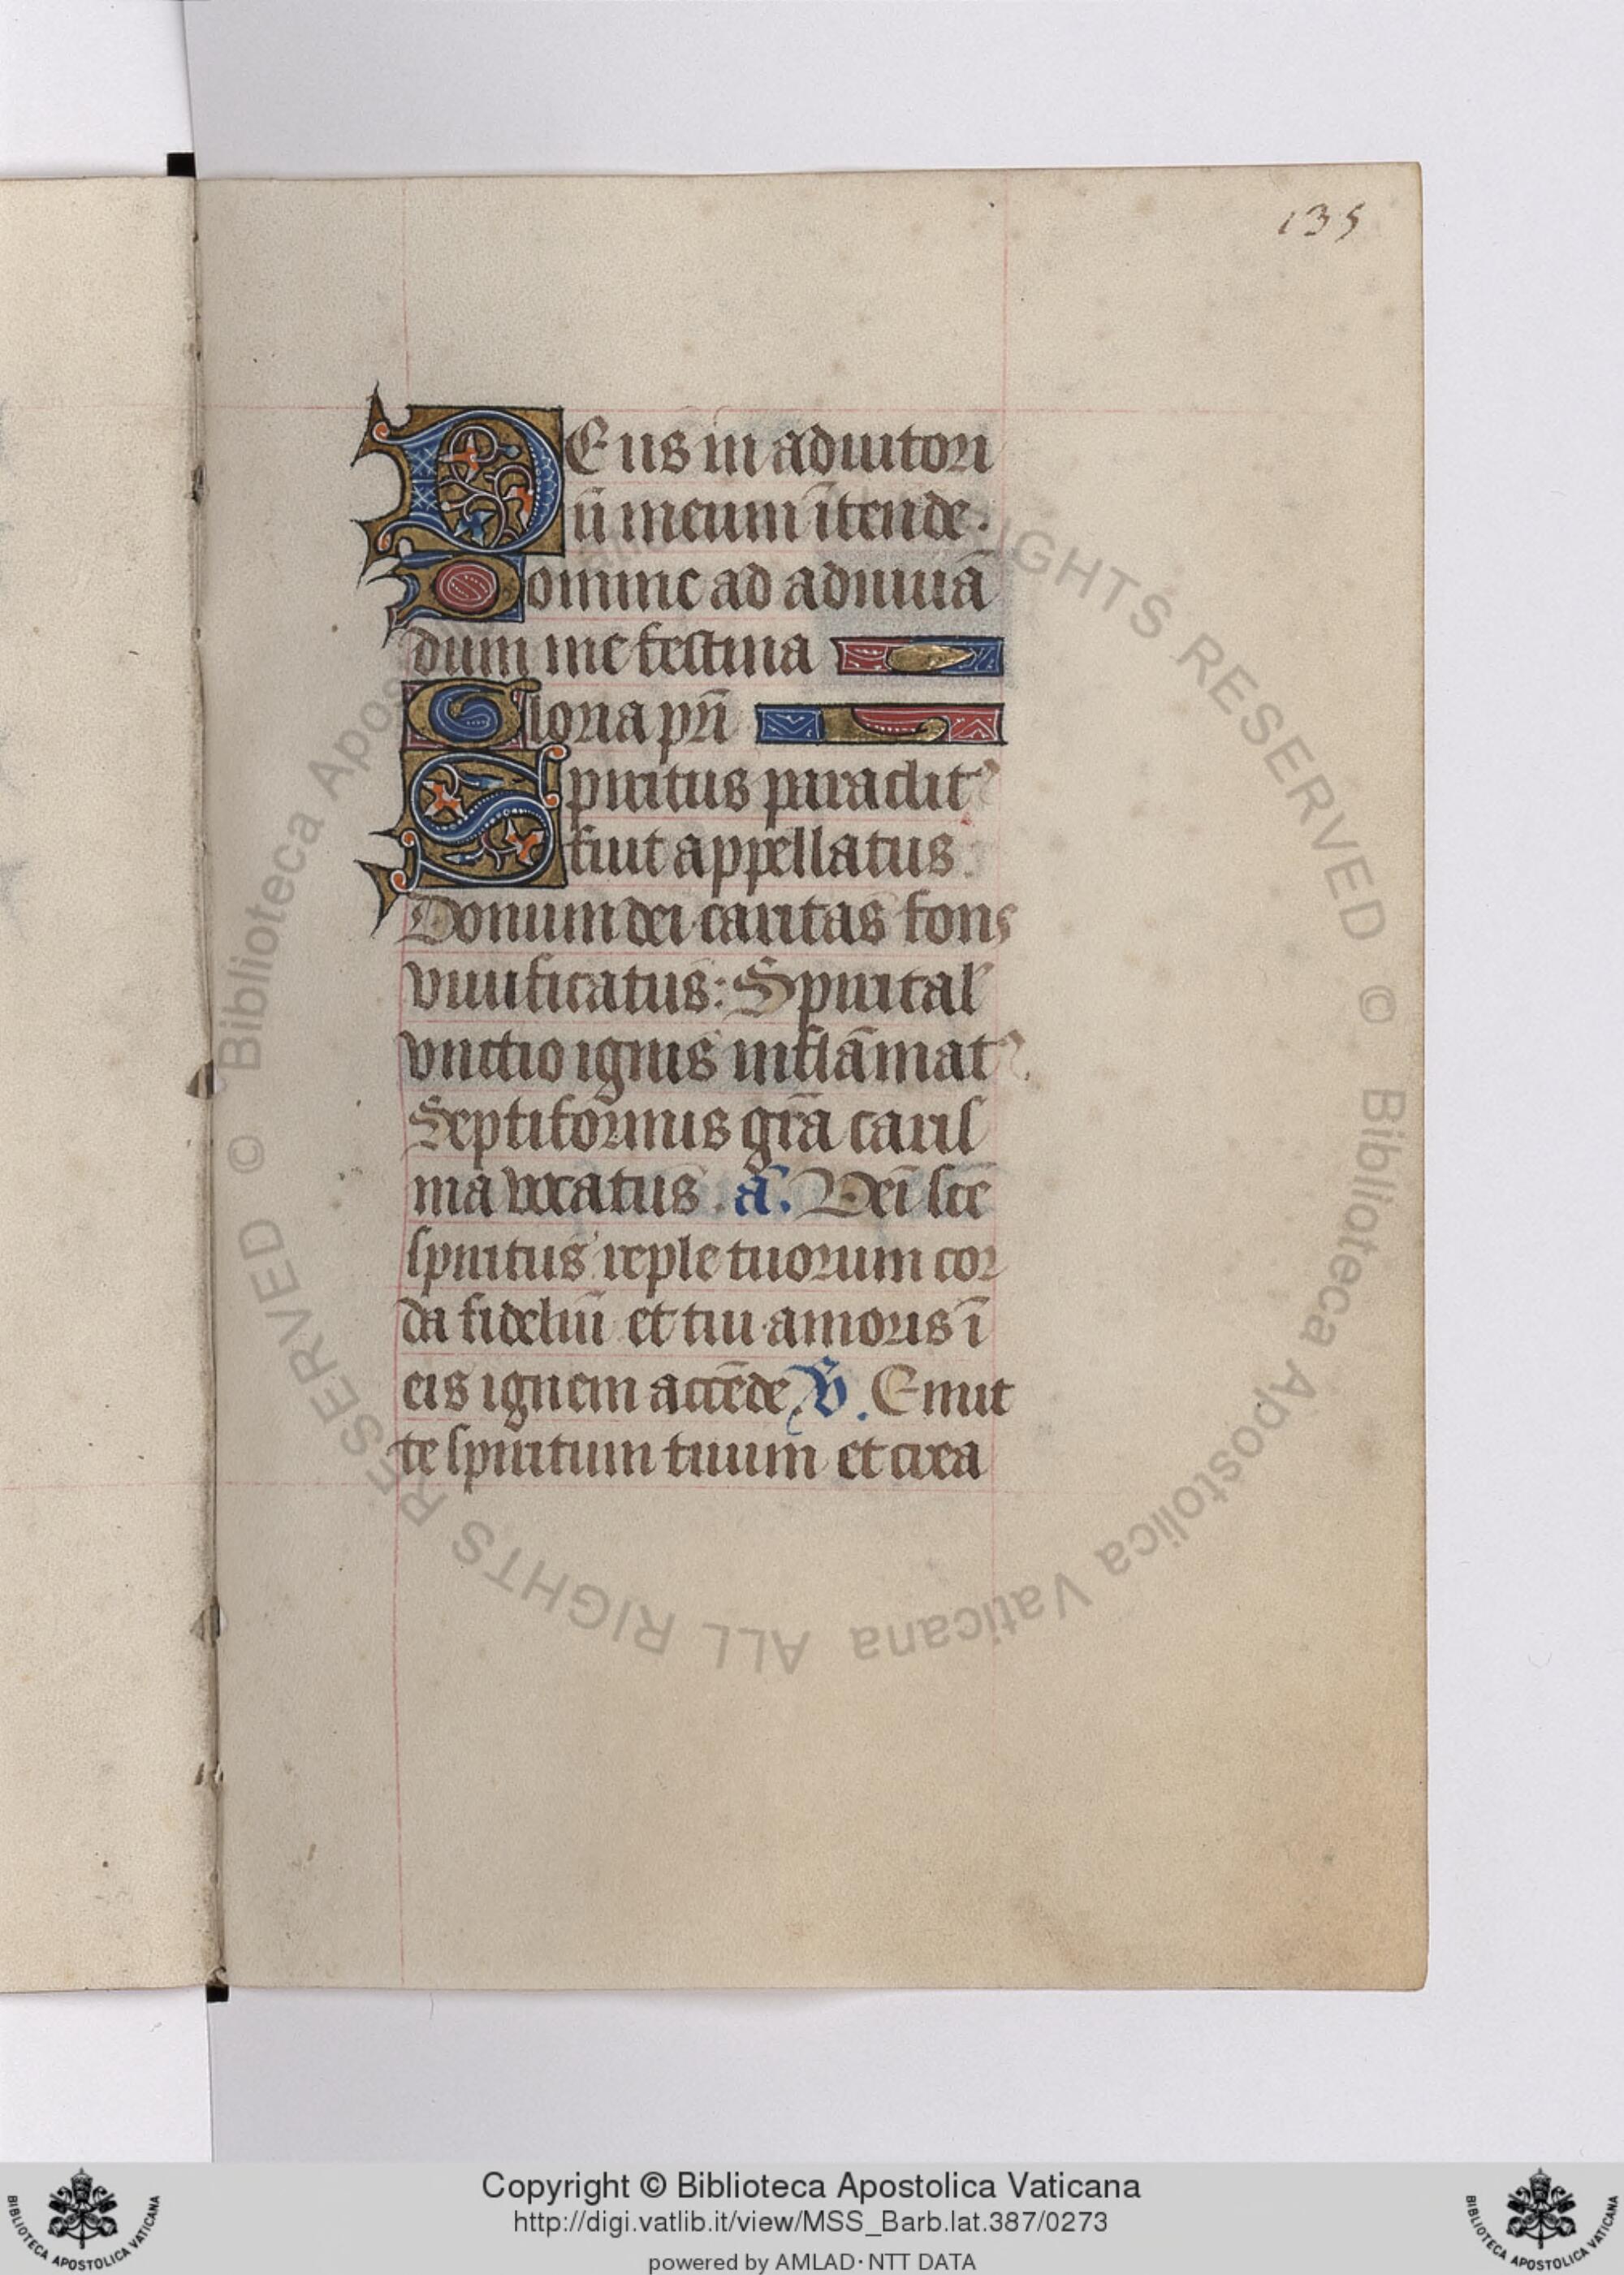 135
DEus in adiutori
ū meum ītende.
Domine ad adiuuā
dum me festina
Gloria pr̄i
Spiritus paraclitꝰ
fuit appellatus
Donum dei caritas fons
viuificatus: Spiritał
vnctio ignis inflāmatꝰ
Septiformis gr̄a caris
ma vocatus. ā. Ueī scē
spiritus reple tuorum cor
da fideliū et tui amoris ī
eis ignem accēde ℣. Emit
te spiritum tuum et crea
© Biblioteca Apostolica Vaticana ALL RIGHTS RESERVED
© Biblioteca Apostolica Vaticana ALL RIGHTS RESERVED
Copyright © Biblioteca Apostolica Vaticana
http://digi.vatlib.it/view/MSS_Barb.lat.387/0273
powered by AMLAD·NTT DATA
BIBLIOTECA APOSTOLICA VATICANA
BIBLIOTECA APOSTOLICA VATICANA